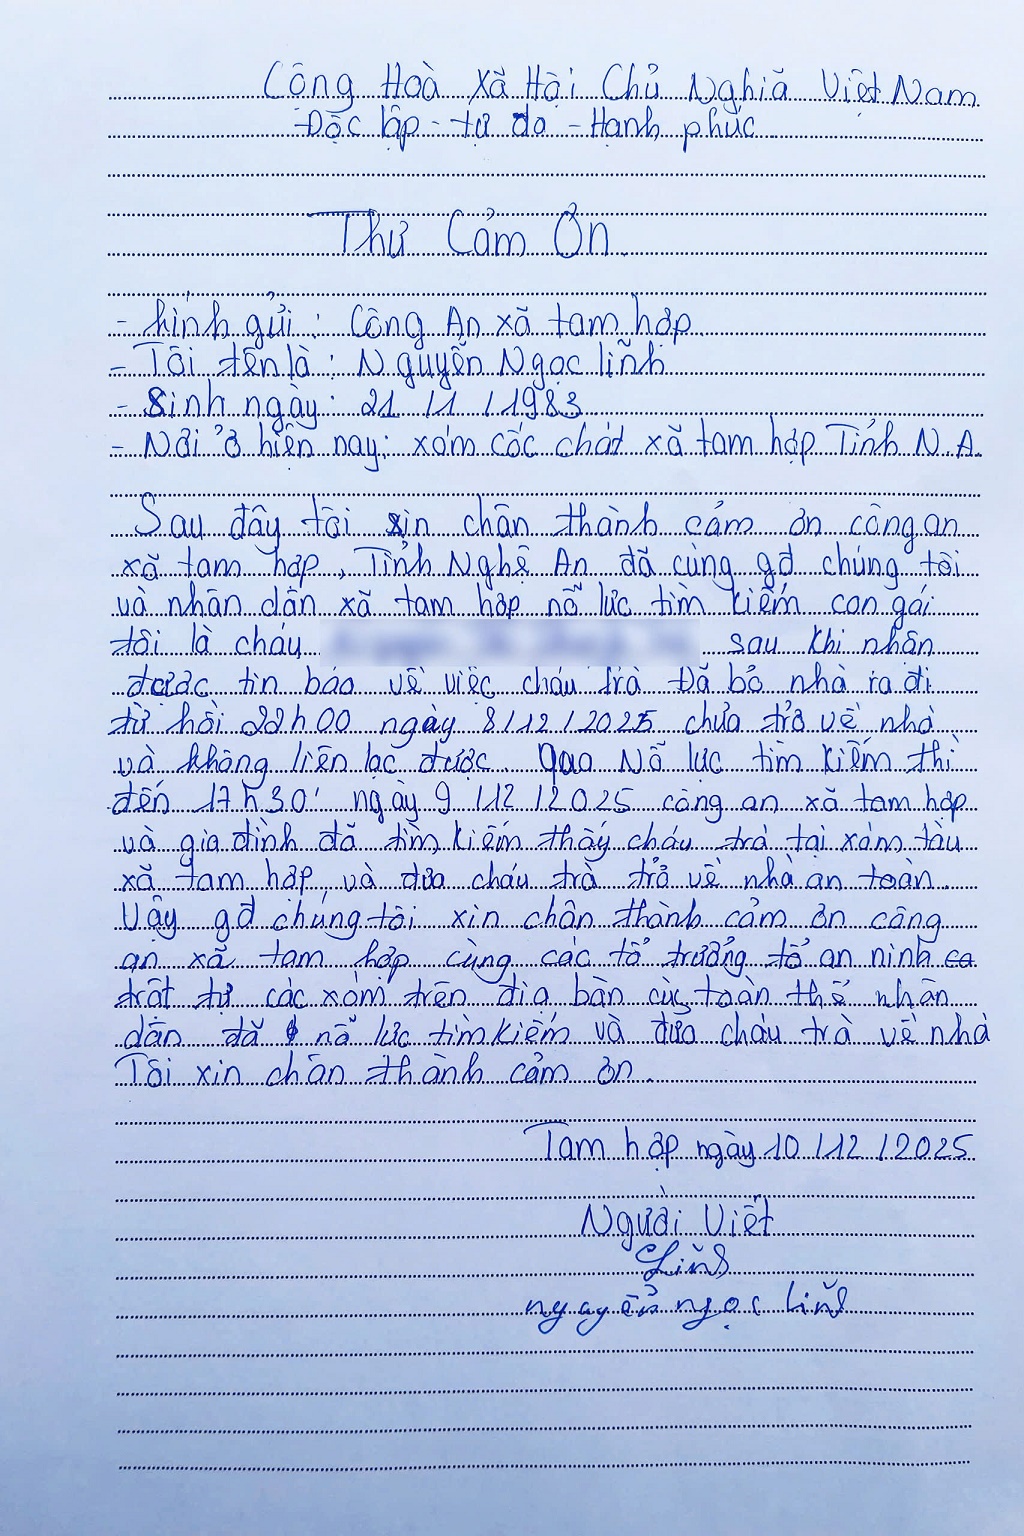 Cộng Hoà Xã Hội Chủ Nghiã Việt Nam
Độc lập - tự do - Hạnh phúc
Thư Cảm Ơn
- kính gửi : Công An xã tam hợp
- Tôi tên là : Nguyễn Ngọc lĩnh
- Sinh ngày : 21 / 1 / 1983
- Nơi ở hiện nay: xóm cốc chát xã tam hợp Tỉnh N.A.
Sau đây tôi xin chân thành cảm ơn công an
xã tam hợp, Tỉnh Nghệ An đã cùng gđ chúng tôi
và nhân dân xã tam hợp nỗ lực tìm kiếm con gái
tôi là cháu sau khi nhân
được tin báo về việc cháu trà Đã bỏ nhà ra đi
từ hồi 22h00 ngày 8/12/2025 chưa trở về nhà
và không liên lạc được. qua Nỗ lực tìm kiếm thì
đến 17h30' ngày 9/12/2025 công an xã tam hợp
và gia đình đã tìm kiếm thấy cháu trà tại xóm tàu
xã tam hợp, và đưa cháu trà trở về nhà an toàn.
Vậy gđ chúng tôi xin chân thành cảm ơn công
an xã tam hợp cùng các tổ trưởng tổ an ninh
trật tự các xóm trên địa bàn cùg toàn thể nhân
dân đã nỗ lực tìm kiếm và đưa cháu trà về nhà
Tôi xin chân thành cảm ơn.
Tam hợp ngày 10/12/2025
Người Viết
Lĩnh
nguyễn ngọc lĩnh